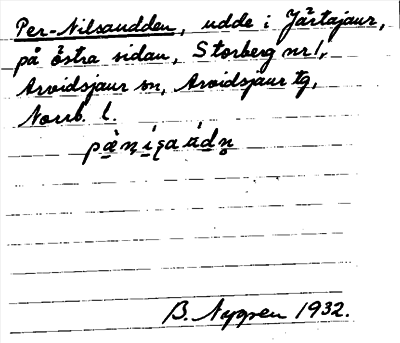 Per-Nilsaudden, udde i Jårtajaur,
på östra sidan, Storberg nr 1,
Arvidsjaur sn, Arvidsjaur tg,
Norrb. l.
B. Nygren 1932.